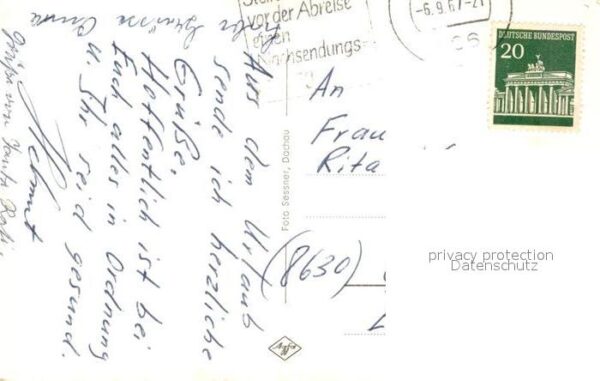 Aus dem Urlaub
sende ich herzliche
Grüße,
Hoffentlich ist bei
Euch alles in Ordnung
u. Ihr seid gesund.
Helmut
vor der Abreise
einen
Nachsendungs-
-6.9.67-21
DEUTSCHE BUNDESPOST
20
An
Frau
Rita
(8630)
Foto Sessner, Dachau
Agfa
privacy protection
Datenschutz